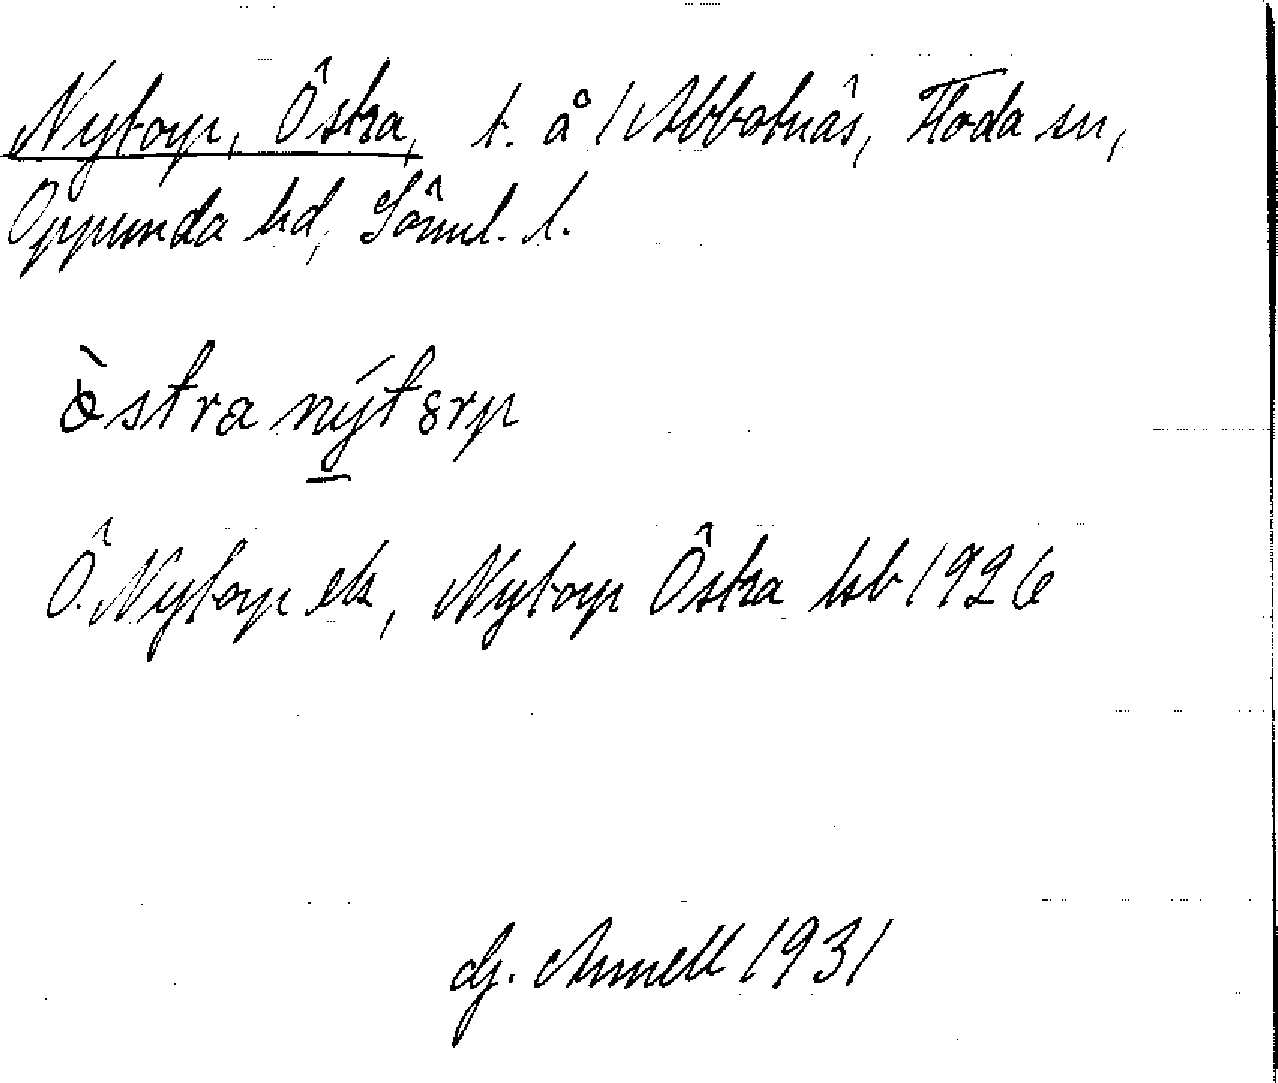 Nytorp, Östra, t. å 1 Abbotnäs, Floda sn,
Oppunda hd, Söml. l.
östra nýtorp
Ö. Nytorp ek, Nytorp Östra hb 1926
G. Annell 1931